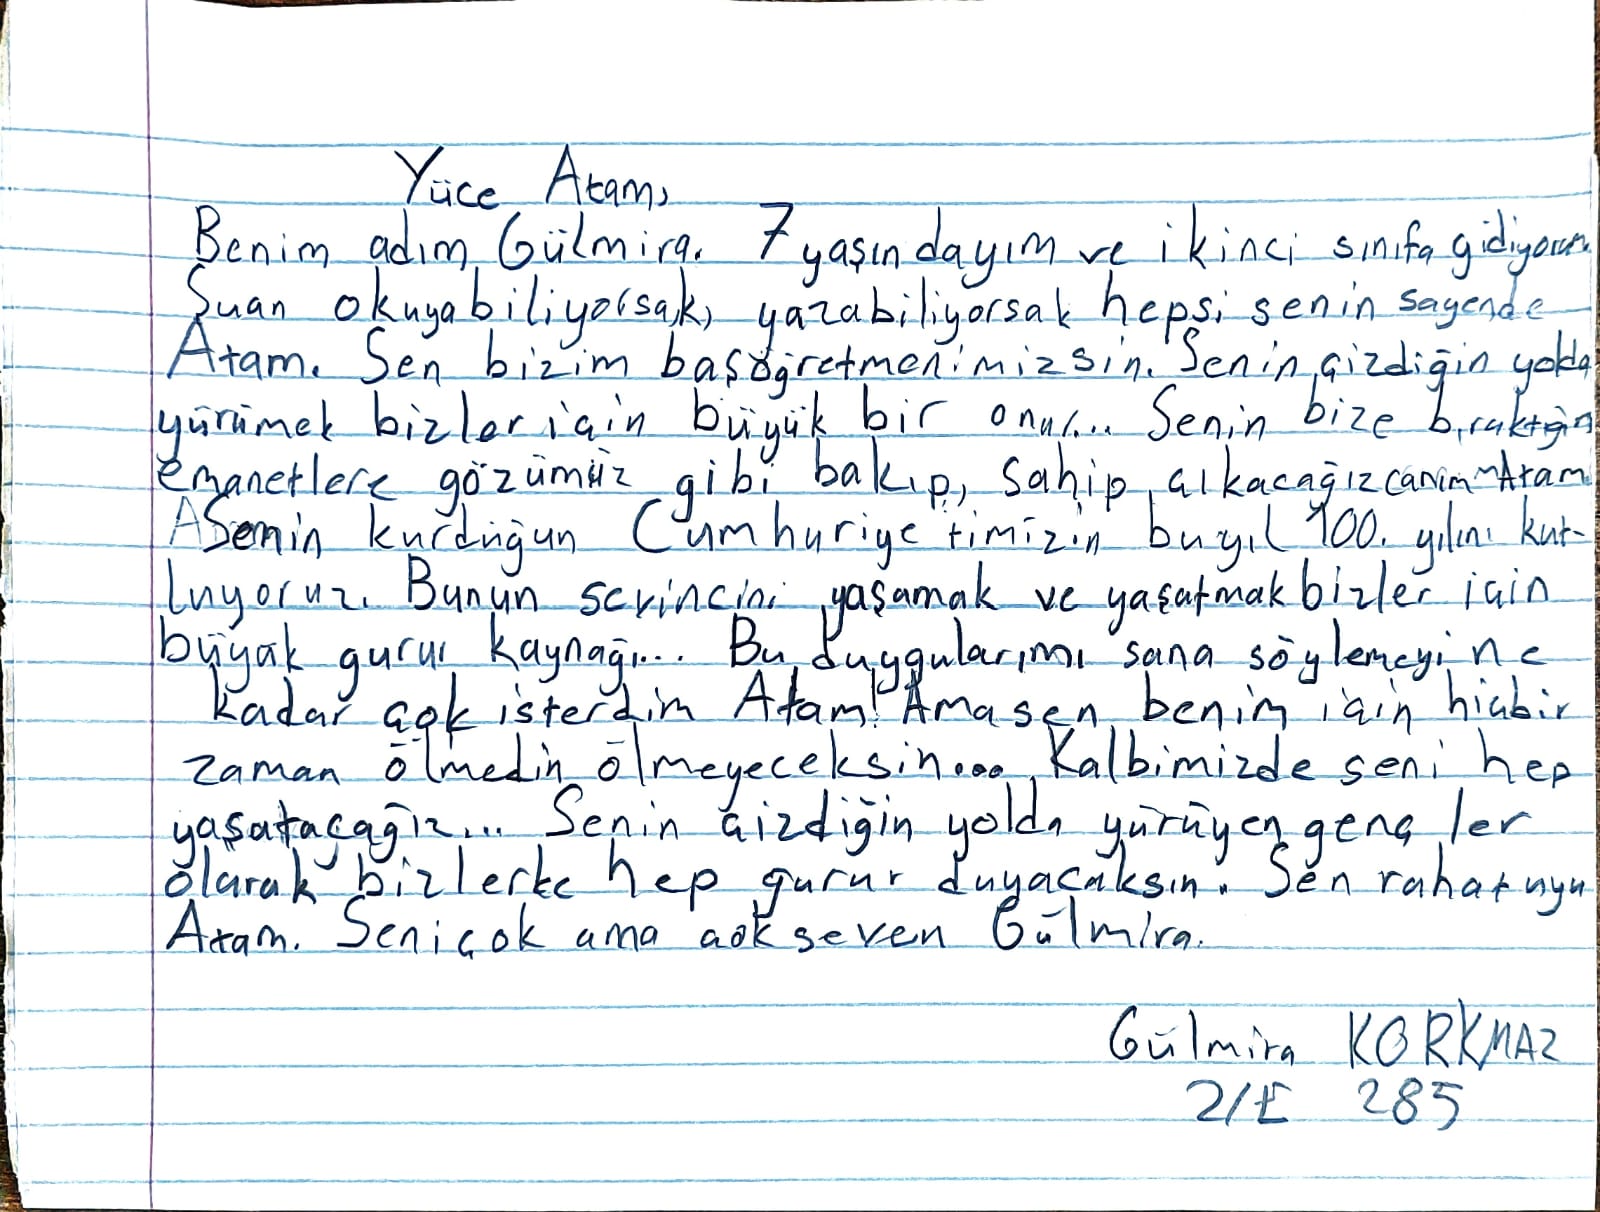 Yüce Atam,
Benim adım Gülmira. 7 yaşındayım ve ikinci sınıfa gidiyorum.
Şuan okuyabiliyorsak, yazabiliyorsak hepsi senin sayende
Atam. Sen bizim başöğretmenimizsin. Senin çizdiğin yolda
yürümek bizler için büyük bir onur... Senin bize bıraktığın
emanetlere gözümüz gibi bakıp, sahip çıkacağız canım Atam
Senin kurduğun Cumhuriyetimizin buyıl 100. yılını kut-
luyoruz. Bunun sevincini yaşamak ve yaşatmak bizler için
büyük gurur kaynağı... Bu duygularımı sana söylemeyi ne
kadar çok isterdim Atam! Ama sen benim için hiçbir
zaman ölmedin ölmeyeceksin... Kalbimizde seni hep
yaşatacağız... Senin çizdiğin yolda yürüyen gençler
olarak bizlerke hep gurur duyacaksın. Sen rahat uyu
Atam. Seni çok ama çok seven Gülmira.
Gülmira KORKMAZ
2/E 285